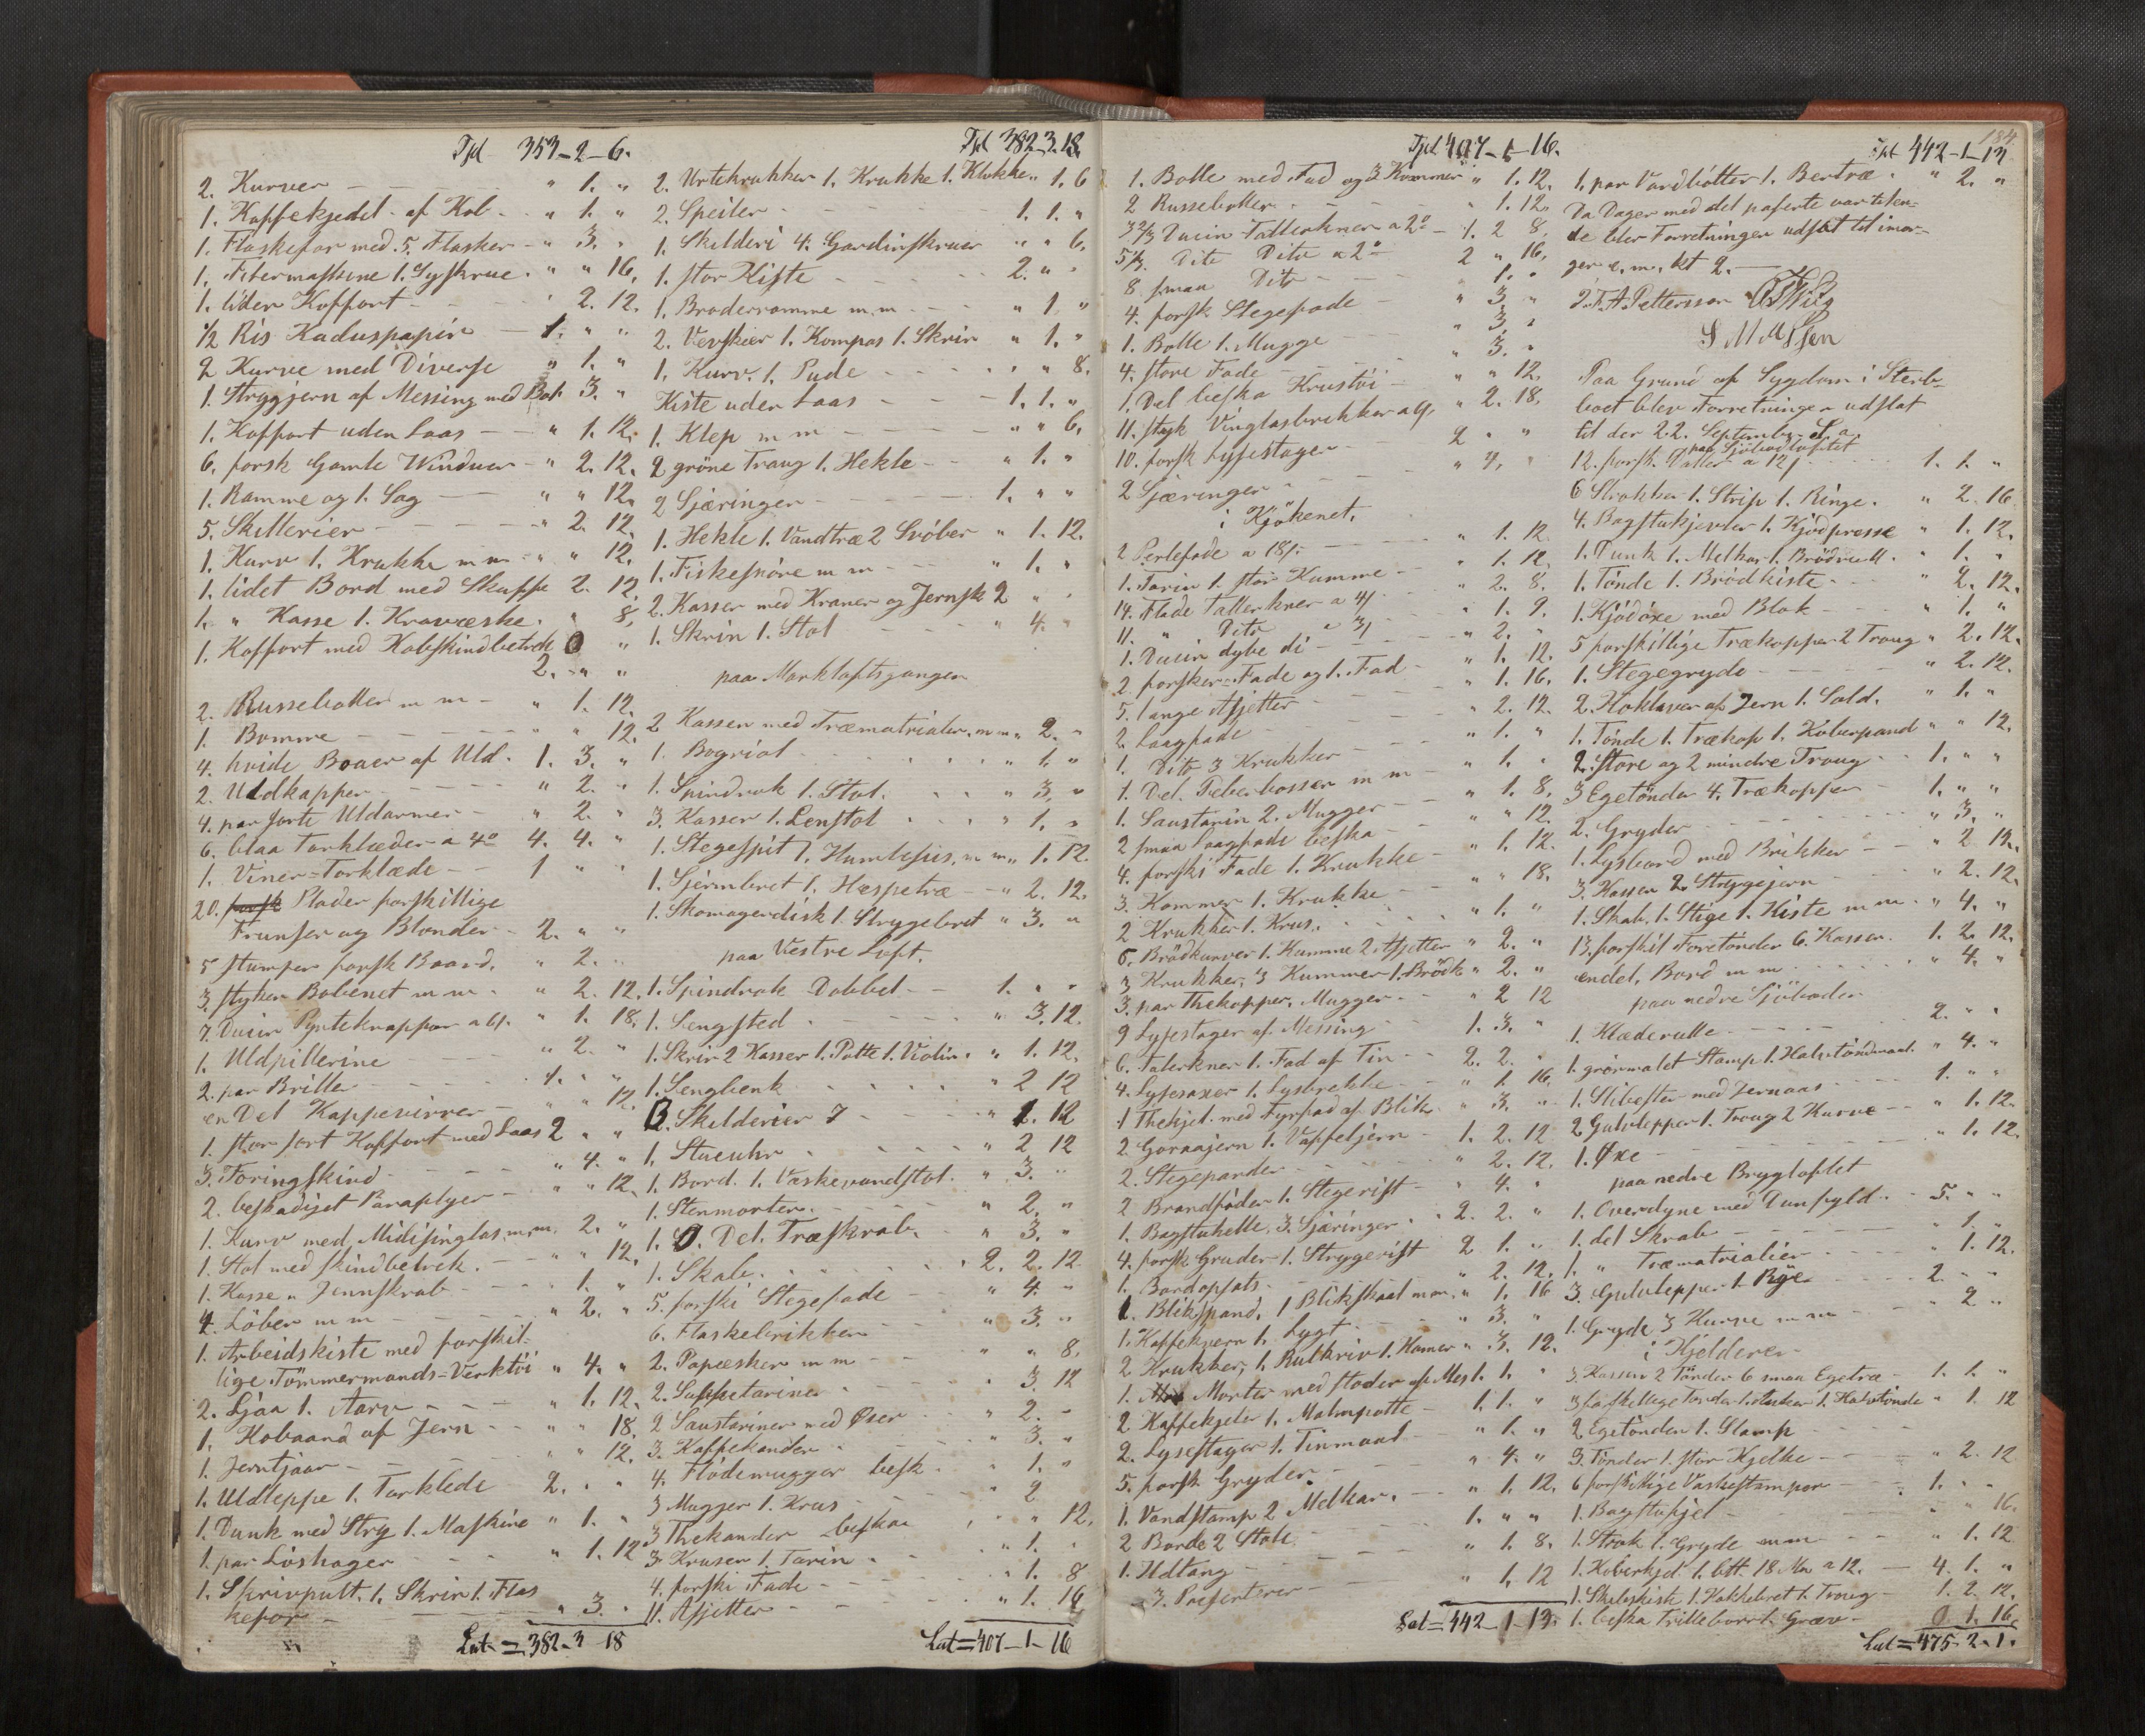 Tpl 353-2-6.
2. Kurver - " 1. "
1. Kaffekjedel af Kob. - " 1. "
1. Flaskefor med 5. Flasker - " 3. "
1. 1. Syskrue. " " 16.
1. liden Koffort - " 2. 12.
1/2 Ris Karduspapir - 1. " "
2 Kurve med Diverse " 1. "
1. Strygjern af Messing med Bolt 3. "
1. Koffort uden Laas - " 1. 12.
6. forsk Gamle Winduer - " 2. 12.
1. Ramme og 1. Sag - " " 12.
5. Skillerier - " 2. 12.
1. Kurv 1. Krukke m m - " " 12.
1. lidet Bord med Skuffe 2. 12.
1. " Kasse 1. " 8.
1. Koffort med Kobskindbetræk
2. " "
2. Russebolter m m - " 1. 12.
1. Bomme - " " 12.
4. hvide Boaer af Uld. 1. 3. "
2. Uldkapper - " 2. "
4. par sorte Uldarmer - " 2. "
6. blaa Torklæder a 4 4. 4. "
1. Viner=Torklæde - 1 " "
20. Plader forskillige
Frunser og Blonder - 2. " "
5 stumper forsk Baand. " 2. "
3. styker Bobenet m m - " 2. 12.
7. Dusin Pynteknapper a 6/. " 1. 18.
1. Uldpillerine " 2. "
2. par Briller - 4. "
en Del Kappevirrer - " " 12.
1. stor sort Koffort med Laas 2 " "
3. Foringskind - " 4. "
2. beskadiget Paraplyer - " " 12.
1. Kurv med m m. 2. "
1. Stol med skindbetrek. - " " 12.
1. Kasse " Jernskrab - " 1. "
4. Löber m m - " 2. "
1. Arbeidskiste med forskil-
lige Tömmermands=Verktöi " 4. "
2. Ljaa 1. Aarv - " 1. 12.
1. Kobaand af Jern - " " 18.
1. Jerntjaar - " " 12.
1. Uldteppe 1. Torklede 2. " "
1. Dunk med Stry 1. Maskine " 1. "
1. par Löshager - " 1. 12
1. Skrivpult. 1. Skrin 1. Flas
kefor - " 3. "
Lat = 382-3-18
Tpl 382-3.18.
2. Urtekrukker 1. Krukke 1. Klokke " 1. 6
2. Speiler - 1. 1. "
1. Skilderi 4. Gardinskruer " " 6.
1. stor Kiste - 2. " "
1. Broderramme m m - " 1. "
2. Vevskier 1. Kompas 1. Skrin " 1. "
1. Kurv. 1. Pude - " " 8.
Kiste uden Laas - 1. 1. "
1. Klep m m - " " 6.
2 gröne Traug 1. Hekle - " 1. "
2 Sjæringer - 1. " "
1. Hekle 1. Vandtræ 2 Svöber " 1. 12.
1. Fiskesnöre m m - " 1. "
2. Kasser med Kraner og Jernsk 2 " "
1. Skrin 1. Stol - " 4. "
paa Markloftsgangen
2 Kasser med Træmatrialer. m m " 2. "
1. Bogriol - " 1. "
1. Spindrok 1. Stol. " 3. "
3. Kasser 1. Lenstol " 1. "
1. Stegespit 1. Humlesiis, m m " 1. 12.
1. Sjermbret 1. Hæspetræ - " 2. 12.
1. Skomagerdisk 1. Strygebret " 3. "
paa Vestre Loft.
1. Spindrok Dobbel - 1. " "
1. Sengsted - " 3. 12.
1. Skrin 2 Kasser 1. Potte 1. Violin. " 1. 12.
1. Sengbenk " 2 12
Skilderier 7 " 1. 12
1. Stueuhr " 2 12
1. Bord. 1. Vaskevandstol. " 3. "
1. Stenmorter. " 2. "
1. Del. Træskrab. " 3. "
1. Skab. 2. 2. 12
5. forski Stegefade - " 4. "
6. Flaskebrikker - " 3. "
2. Papæsker m m - " " 8.
2. Suppetariner - " 3. 12
2 Saustariner med Øser " 2. -
3. Kaffekander - " 3. "
4. Flödemugger besk. " 1. "
3 Mugger 1. Krus - " 2
3 Thekander beska " " 12.
3. Kruser 1. Tarin. " 1. "
4. forski Fade - " 1. 8
11. Asjetter - " 1. 16
Lat = 407-1-16
Tpl 407-1-16.
1. Bolle med Fad og 3 Kommer " 1. 12.
2 Russeboller - " 1. 12.
3 2/3 Dusin Tallerkner a 2 - 1. 2 8.
5 1/3. Dito Dito a 2 2 " 16.
8 smaa Dito - " 1. "
4. forsk Stegefade - " 3. "
1. Bolle 1. Mugge " 3. "
4. store Fade - " 3. "
1. Del beska Krustöi - " " 12.
11. styk Vinglasbrikker a 6/. " 2. 18.
10. forsk Lysestager - 2 " "
2 Sjæringer - " 4. "
i Kjökenet.
2 Perlefade a 18/: - " 1. 12.
1. Tarin 1. stor Kumme - " 1. 12.
14. Flade Tallerkner a 4/ - " 2. 8.
11. " Dito a 3/ " 1. 9.
1. Dusin dybe di - " 2. "
2 forsker=Fade og 1. Fad - " 1. 12.
5. lange Asjetter - " 1. 16.
2. Laagfade - " 2. 12.
1. Dito 3 Krukker - " 1. "
1. Del. Peberbosser m m - " 1. "
1. Saustarin 2. Mugger - " 1. 8.
2 smaa Laagfade beska - " " 12.
4. forski Fade 1. Krukke - " 1. 12.
3. Kommer 1. Krukke " " 18.
2 Krukker 1. Krus. " 1. "
6. Brödkurver 1. Kumme 2. Asjetter " 2. "
3 Krukker, 3 Kummer 1. Brödk " 2. "
3. par Thekopper, Mugger. - " 2 12
9 Lysestager af Messing - 1. 3. "
6. Talerkner 1. Fad af Tin - 2. 2. "
4. Lysesaxer 1. Lysbrekke - " 1. 16.
1 Thekjel. med Fyrfad af Blik. " 3. "
2. Goraajern 1. Vaffeljern - 1. 2. 12
2. Stegepander - " 2. 12.
2 Brandföder 1. Stegerist - " 4. "
1. Bagstuhelle. 3. Sjæringer. " 2. 2. "
4. forsk Gruder 1. Strygerist 2 1. "
1. Bordopsats - " 2. 12.
1. Blikspand, 1 Blikskaal m m. " 1. 16
1. Kaffekvern 1. Lygt. " 3. "
2 Krukker, 1. Rulkniv 1. Hamer " 3. 12.
1. Morter med stöder af Mes 1. 1. "
2 Kaffekjeler 1. Malmpotte - 1. 1. "
2. Lysestager 1. Tinmaal " 1. "
5. forsk Gryder. " 4. "
1. Vandstamp 2 Melkar. - " 1. 12.
2 Borde 2 Stole - 1. " "
1. Ildtang - " 1. 8.
3. Præsenterer - " 1. 12
Lat = 442-1-13.
184
Tpl 442-1-13
1. par Vardbötter 1. Bertræ. " 2. "
Da Dagen med det paferte var tilen-
de blev Forretningen udsat til imor-
gen e. m. kl 2. -
Paa Grund af Sygdom i Sterb-
boet blev Forretningen udsat
til den 22. September s. a.
paa Sjöbodloftet
12. forsk. a 12/. 1. 1. "
6 Strokker 1. Strip 1. Ringe. " 2. 16
4. Bagstukjevler 1. Kjödpresse " 1. 12.
1. Dunk 1. Melkar 1. Brödrull. " 1. "
1. Tönde 1. Brödkiste - " 2. 12.
1. Kjödöxe med Blok - " 1. "
5 forskillige Trækopper 2 Traug " 2. 12.
1. Stegegryde - " 2. 12.
2. af Jern 1. Sold. " 1. "
1. Tönde 1. Trækop 1. Koberpand " " 12.
2. store og 2 mindre Traug - 1. " "
3 Egetönder 4. Trækopper - 1. " "
2. Gryder - " 3. "
1. Lysbord med Brikker - " 2 12.
3. Kasser 2. Strygejern - " 2. 12.
1. Skab. 1. Stige 1. Kiste m m. " 4. "
13. forskil Foretönder 6. Kasser. 1. 2. 12.
endel. Bord m m - " 4. "
paa nedre Sjöboden
1. Klæderulle - 2. " "
1. grönmalet Stamp 1. Halvtöndmaal. " 4. "
1. med Jernaas - 1. " "
2 Gulvtepper 1. Traug 2 Kurve - " 1. 12.
1. Øxe - " 1. 12.
paa nedre Brygloftet
1. Overdyne med Dunfyld. - 5. " "
1. del Skrab - " 1. "
1. " Træmatrialier - " 1. 12.
3. Gulvtepper 1. Rye - 2. " "
1. Gryde 3 Kurve m m - " 2 "
i Kjelderen
3. Kasser 2 Tönder 6 smaa Egetræ - 1. 1. "
3 forskillige Tönder 1. Dunker 1. Halvtönde " 1. 12
2 Egetönder 1. Stamp -
3. Tönder 1. stor Kjelke - " 2. 12
6 forskillige Vaskestamper - " 1. "
1. Bagstukjel - " " 16.
1. Strok 1. Gryde m m - " 1. 12
1. Koberkjel. 1. bit. 18 Mrk a 12. - 4. 1. "
1. 1. Hakkebret 1. Traug - 1. 2. 12.
1. beska Trillebør 1. Græv - 0 1. 16.
Lat = 475-2-1.